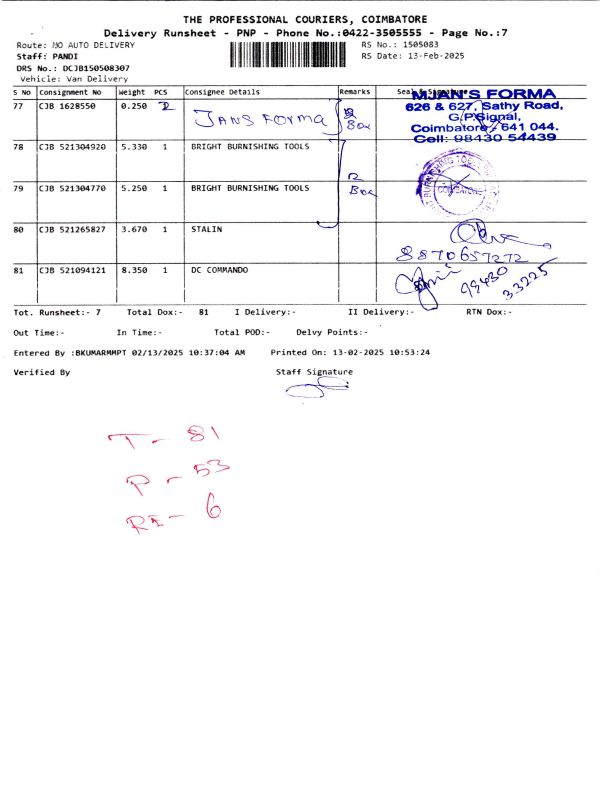 THE PROFESSIONAL COURIERS, COIMBATORE
Delivery Runsheet - PNP - Phone No.:0422-3505555 - Page No.:7
Route: NO AUTO DELIVERY
RS No.: 1505083
Staff: PANDI
RS Date: 13-Feb-2025
DRS No.: DCJB150508307
Vehicle: Van Delivery
S No Consignment No Weight PCS Consignee Details Remarks Seal & Signature
77 CJB 1628550 0.250 2 JANS FORMA 2 Box
MJAN'S FORMA
626 & 627, Sathy Road,
G.P.Signal,
Coimbatore - 641 044.
Cell: 98430 54439
78 CJB 521304920 5.330 1 BRIGHT BURNISHING TOOLS
79 CJB 521304770 5.250 1 BRIGHT BURNISHING TOOLS 2 Box
COIMBATORE
80 CJB 521265827 3.670 1 STALIN
8870657272
81 CJB 521094121 8.350 1 DC COMMANDO
99430 33225
Tot. Runsheet:- 7 Total Dox:- 81 I Delivery:- II Delivery:- RTN Dox:-
Out Time:- In Time:- Total POD:- Delvy Points:-
Entered By :BKUMARMMPT 02/13/2025 10:37:04 AM Printed On: 13-02-2025 10:53:24
Verified By Staff Signature
T - 81
P - 53
RI - 6